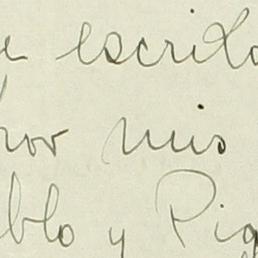 e escrito
por mis
blo y Pi